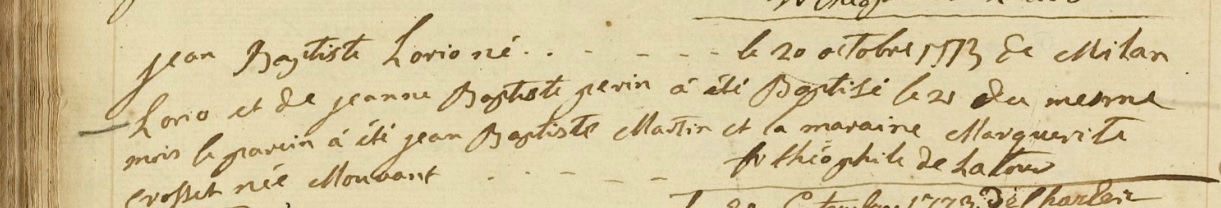 jean Baptiste Lorio né . . - - - - le 20 octobre 1773 de Milan
Lorio et de jeanne Baptiste perin á été Baptisé le 21 du mesme
mois le parein á été jean Baptiste Martin et la maraine Marguerite
Crosset née Mouvant . - - - - fr théophile de La tour